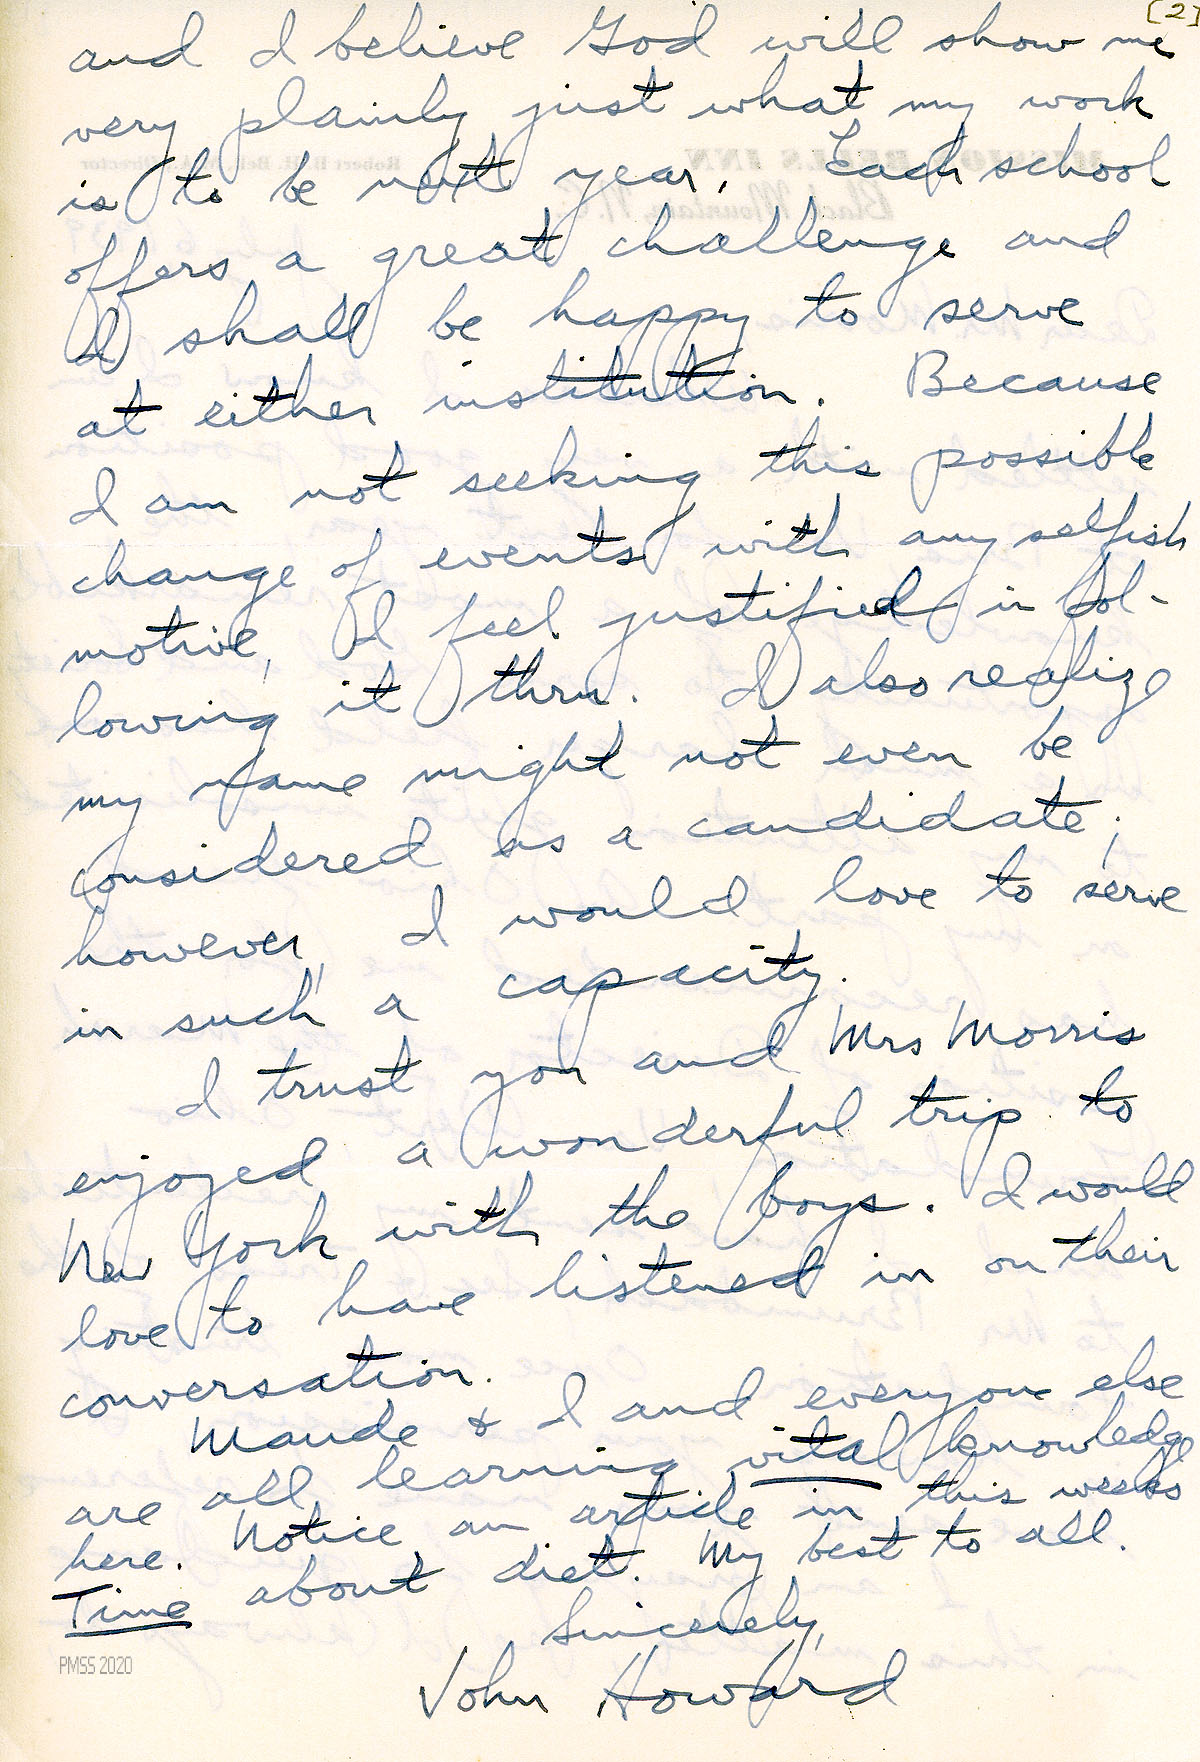 [2]
and I believe God will show me
very plainly just what my work
is to be next year. Each school
offers a great challenge and
I shall be happy to serve
at either institution. Because
I am not seeking this possible
change of events with any selfish
motive, I feel justified in fol-
lowing it thru. I also realize
my name might not even be
considered as a candidate;
however, I would love to serve
in such a capacity.
I trust you and Mrs Morris
enjoyed a wonderful trip to
New York with the boys. I would
love to have listened in on their
conversation.
Maude & I and everyone else
are all learning vital knowledge
here. Notice an article in this weeks
Time about diet. My best to all.
Sincerely,
John Howard
PMSS 2020